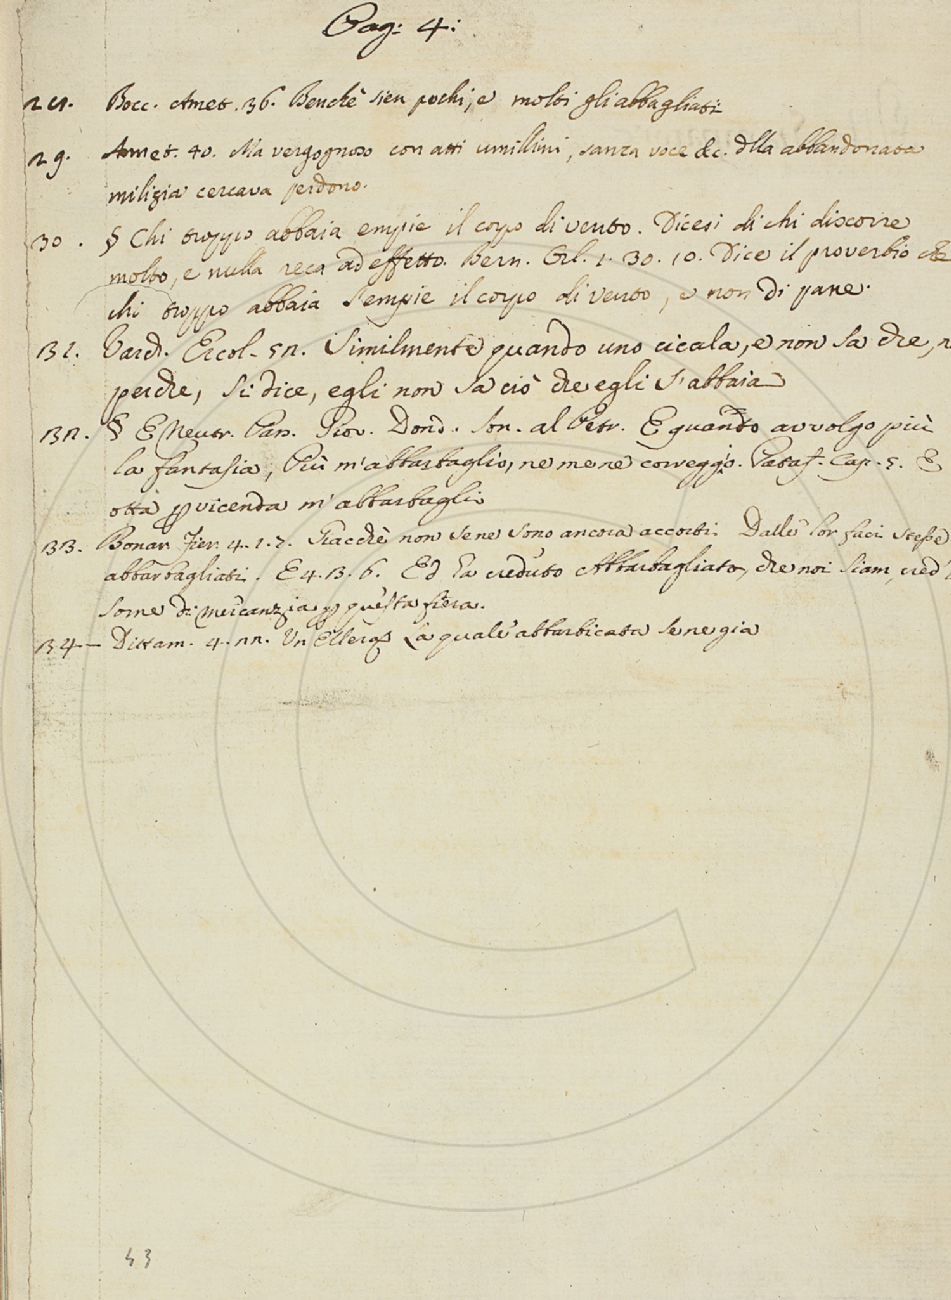 Pag: 4:
Bocc. Amet. 36. Benchè sien pochi, e molti gli abbagliati
29. Amet. 40. Ma vergognoso con atti umillini, sanza voce &c. dlla abbandonata
milizia cercava perdono.
30. § Chi troppo abbaia empie il corpo di vento. Dicesi di chi discorre
molto, e nulla reca ad effetto. Bern. Orl. 1. 30. 10. Dice il proverbio che
chi troppo abbaia s'empie il corpo di vento, e non di pane.
Varch. Ercol. 52. Similmente quando uno cicala, e non sa che,
perchè, si dice, egli non sa ciò che egli s'abbaia
§ E Neutr. Pass. Giov. Dond. Son. al Petr. E quando avvolgo più
la fantasia, Più m'abbarbaglio, ne me ne correggio. Pataf. Cap. 5. E
otta p vicenda m'abbarbagli
33. Bonar. Fier. 4. 1. 7. Giacchè non se ne sono ancora accorti. Dalle lor faci stesse
abbarbagliati. E 4. 3. 6. Ed ha veduto Abbarbagliato, che noi siam,
some di mercanzia p questa fiera.
34 – Dittam. 4. 22. Un La quale abbarbicata se ne gia
43